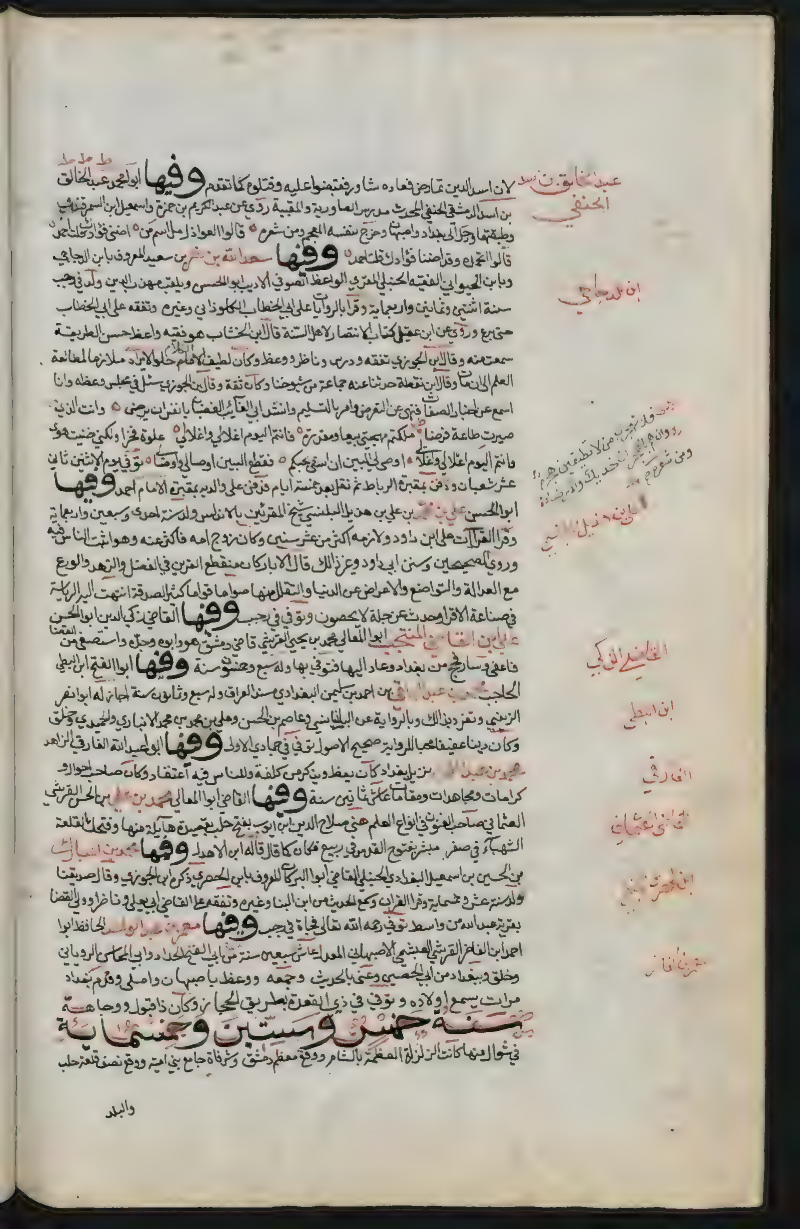 لان اسد الدين تمارض فعاده شاور فقبضوا عليه وقتلوه كما تقدم وفيها ابو محمد عبد الخالق
بن اسد الدمشقي الحنفي المحدث مدرس الصادرية والمقبة روى عن عبد الكريم بن حمزة واسمعيل ابن السمرقندي
وطبقتهما ورحل الى بغداد واصبهان وخرج لنفسه المعجم ومن شعره قالوا العواذل ما اسم من اضنى فؤادك قلت احمد
قالوا اتحمده وقد اضنا فؤادك قلت احمد وفيها سعد الله بن نصر بن سعيد المعروف بابن الدجاجي
وبابن الحيواني الفقيه الحنبلي المقري الواعظ الصوفي الاديب ابو الحسن ويلقب مهذب الدين ولد في رجب
سنة اثنتين وثمانين واربعماية وقرا بالروايات على ابي الخطاب الكلوذاني وغيره وتفقه على ابي الخطاب
حتى برع وروى عن ابن عقيل كتاب الانتصار لاهل السنة قال ابن الخشاب هو فقيه واعظ حسن الطريقة
سمعت منه وقال ابن الجوزي تفقه ودرس وناظر ووعظ وكان لطيف الكلام حلو الايراد ملازما لمطالعة
العلم الى ان مات وقال ابن نقطة حدثنا عنه جماعة من شيوخنا وكان ثقة وقال ابن الجوزي سئل في مجلس وعظه وانا
اسمع عن اخبار الصفات فنهى عن التعرض وامر بالتسليم وانشد ابي الغائب الغضبان يا نفس ان يرضى وانت الذي
صيرت طاعته فرضا ملكتم مهجتي بيعا ومقدرة فانتم اليوم اغلالي واغلالي علوت فخرا ولكني ضنيت هوى
وانتم اليوم اعلالي واعلالي اوصى لي البين ان اشقى بحبكم فقطع البين اوصالي واوصالي توفي يوم الاثنين ثاني
عشر شعبان ودفن بمقبرة الرباط ثم نقل بعد خمسة ايام فدفن على والديه بمقبرة الامام احمد وفيها
ابو الحسن علي بن محمد بن علي بن هذيل البلنسي شيخ المقرئين بالاندلس ولد سنة احدى وسبعين واربعماية
وقرا القراءات على ابن داود ولازمه اكثر من عشر سنين وكان زوج امه فاكثر عنه وهو اثبت الناس فيه
وروى الصحيحين وسنن ابي داود وغير ذلك قال الابار كان منقطع القرين في الفضل والزهد والورع
مع العدالة والتواضع والاعراض عن الدنيا والتقلل منها صواما قواما كثير الصدقة انتهت اليه الرياسة
في صناعة الاقرا وحدث عن جلة لا يحصون وتوفي في رجب وفيها القاضي زكي الدين ابو الحسن
علي بن القاضي المنتجب ابو المعالي محمد بن يحيى القرشي قاضي دمشق هو وابوه وجده واستعفى من القضا
فاعفي وسار فحج من بغداد وعاد اليها فتوفي بها وله سبع وخمسون سنة وفيها ابو الفتح ابن البطي
الحاجب محمد بن عبد الباقي بن احمد بن سليمن البغدادي مسند العراق وله سبع وثمانون سنة اجاز له ابو نصر
الزينبي وتفرد بذلك وبالرواية عن البانياسي وعاصم بن الحسن وعلي بن محمد بن محمد الانباري والحميدي وخلق
وكان دينا عفيفا محبا للرواية صحيح الاصول توفي في جمادى الاولى وفيها ابو عبد الله الفارقي الزاهد
محمد بن عبد الملك نزيل بغداد كان يعظ ويذكر من كلفة وللناس فيه اعتقاد وكان صاحب احوال و
كرامات ومجاهدات ومقامات عاش ثمانين سنة وفيها القاضي ابو المعالي محمد بن علي بن الحسن القرشي
العثماني صاحب الفنون في انواع العلم هنى صلاح الدين ابن ايوب بفتح حلب بقصيدة هايلة منها وفتحك القلعة
الشهباء في صفر مبشر بفتوح القدس في رجب فكان كما قال قاله ابن الاهدل وفيها محمد بن المبارك
بن الحسين بن اسمعيل البغدادي الحنبلي القاضي ابو البركات المعروف بابن الحصري ذكره ابن الجوزي وقال صديقنا
ولد سنة عشر وخمسماية وقرا القران وسمع الحديث من ابن البنا وغيره وتفقه على القاضي ابي يعلى وناظر وولي القضا
بقرية عبد الله من واسط توفي رحمه الله تعالى فجاة في رجب وفيها معمر بن عبد الواحد الحافظ ابو
احمد ابن الفاخر القرشي العبشمي الاصبهاني المعدل عاش سبعين سنة سمع من ابي الفتح الحداد وابي المحاسن الروياني
وخلق وببغداد من ابن الحصين وعني بالحديث وجمعه ووعظ باصبهان واملى وقدم بغداد
مرات يسمع اولاده وتوفي في ذي القعدة بطريق الحجاز وكان ذا قبول ووجاهة
سنة خمس وستين وخمسماية
في شوال منها كانت الزلزلة العظمى بالشام ووقع معظم دمشق وشرفات جامع بني امية ووقع نصف قلعة حلب
والبلد
عبد الخالق بن اسد
الحنفي
ابن الدجاجي
علي بن هذيل البلنسي
القاضي الزكي
ابن البطي
الفارقي
القاضي العثماني
ابن الحصري الحنبلي
معمر بن الفاخر